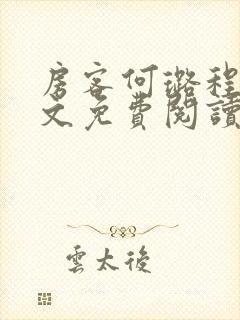 房客何璐程
文免費閱讀
雲太後